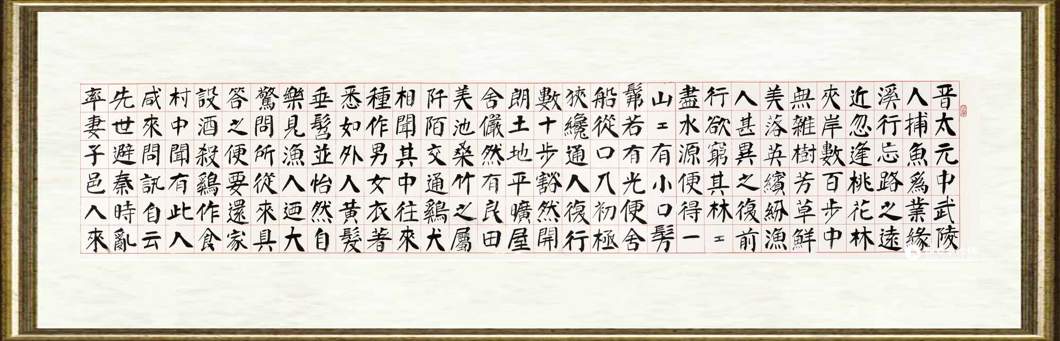 晋太元中武陵
人捕魚爲業緣
溪行忘路之遠
近忽逢桃花林
夾岸數百步中
無雜樹芳草鮮
美落英繽紛漁
人甚異之復前
行欲窮其林〻
盡水源便得一
山〻有小口髣
髴若有光便舍
船從口入初極
狹纔通人復行
數十步豁然開
朗土地平曠屋
舍儼然有良田
美池桑竹之屬
阡陌交通鷄犬
相聞其中往來
種作男女衣著
悉如外人黃髮
垂髫並怡然自
樂見漁人迺大
驚問所從來具
答之便要還家
設酒殺鷄作食
村中聞有此人
咸來問訊自云
先世避秦時亂
率妻子邑人來